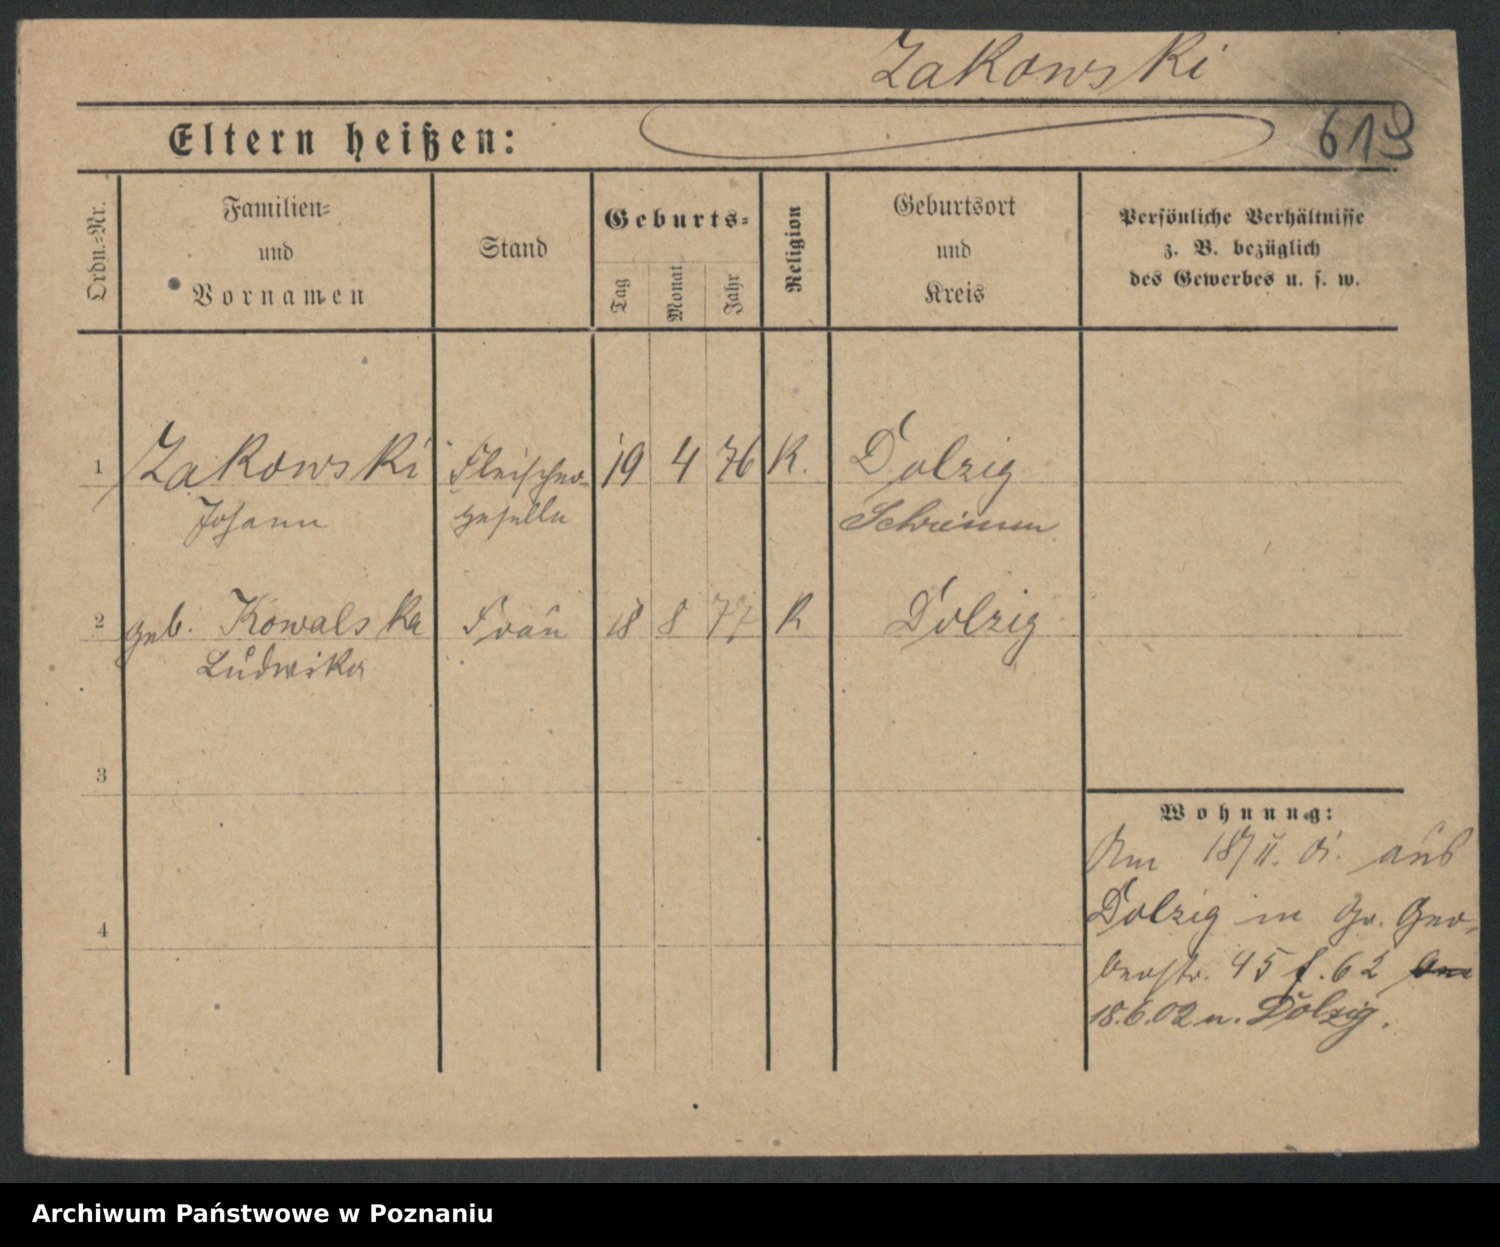 Zakowski
Eltern heißen:
613
Ordn.-Nr.
Familien-
und
Vornamen
Stand
Geburts-
Tag
Monat
Jahr
Religion
Geburtsort
und
Kreis
Persönliche Verhältnisse
z. B. bezüglich
des Gewerbes u. s. w.
1
Zakowski
Fleischer-
19 4 76
K.
Dolzig
Johann
geselle
Schrimm
2
geb. Kowalska
Frau
18 8 77
K
Dolzig
Ludwika
3
Wohnung:
Am 18/II. 01. aus
Dolzig in Gr. Ger-
4
berstr. 45 f. 62
18.6.02 n. Dolzig.
Archiwum Państwowe w Poznaniu